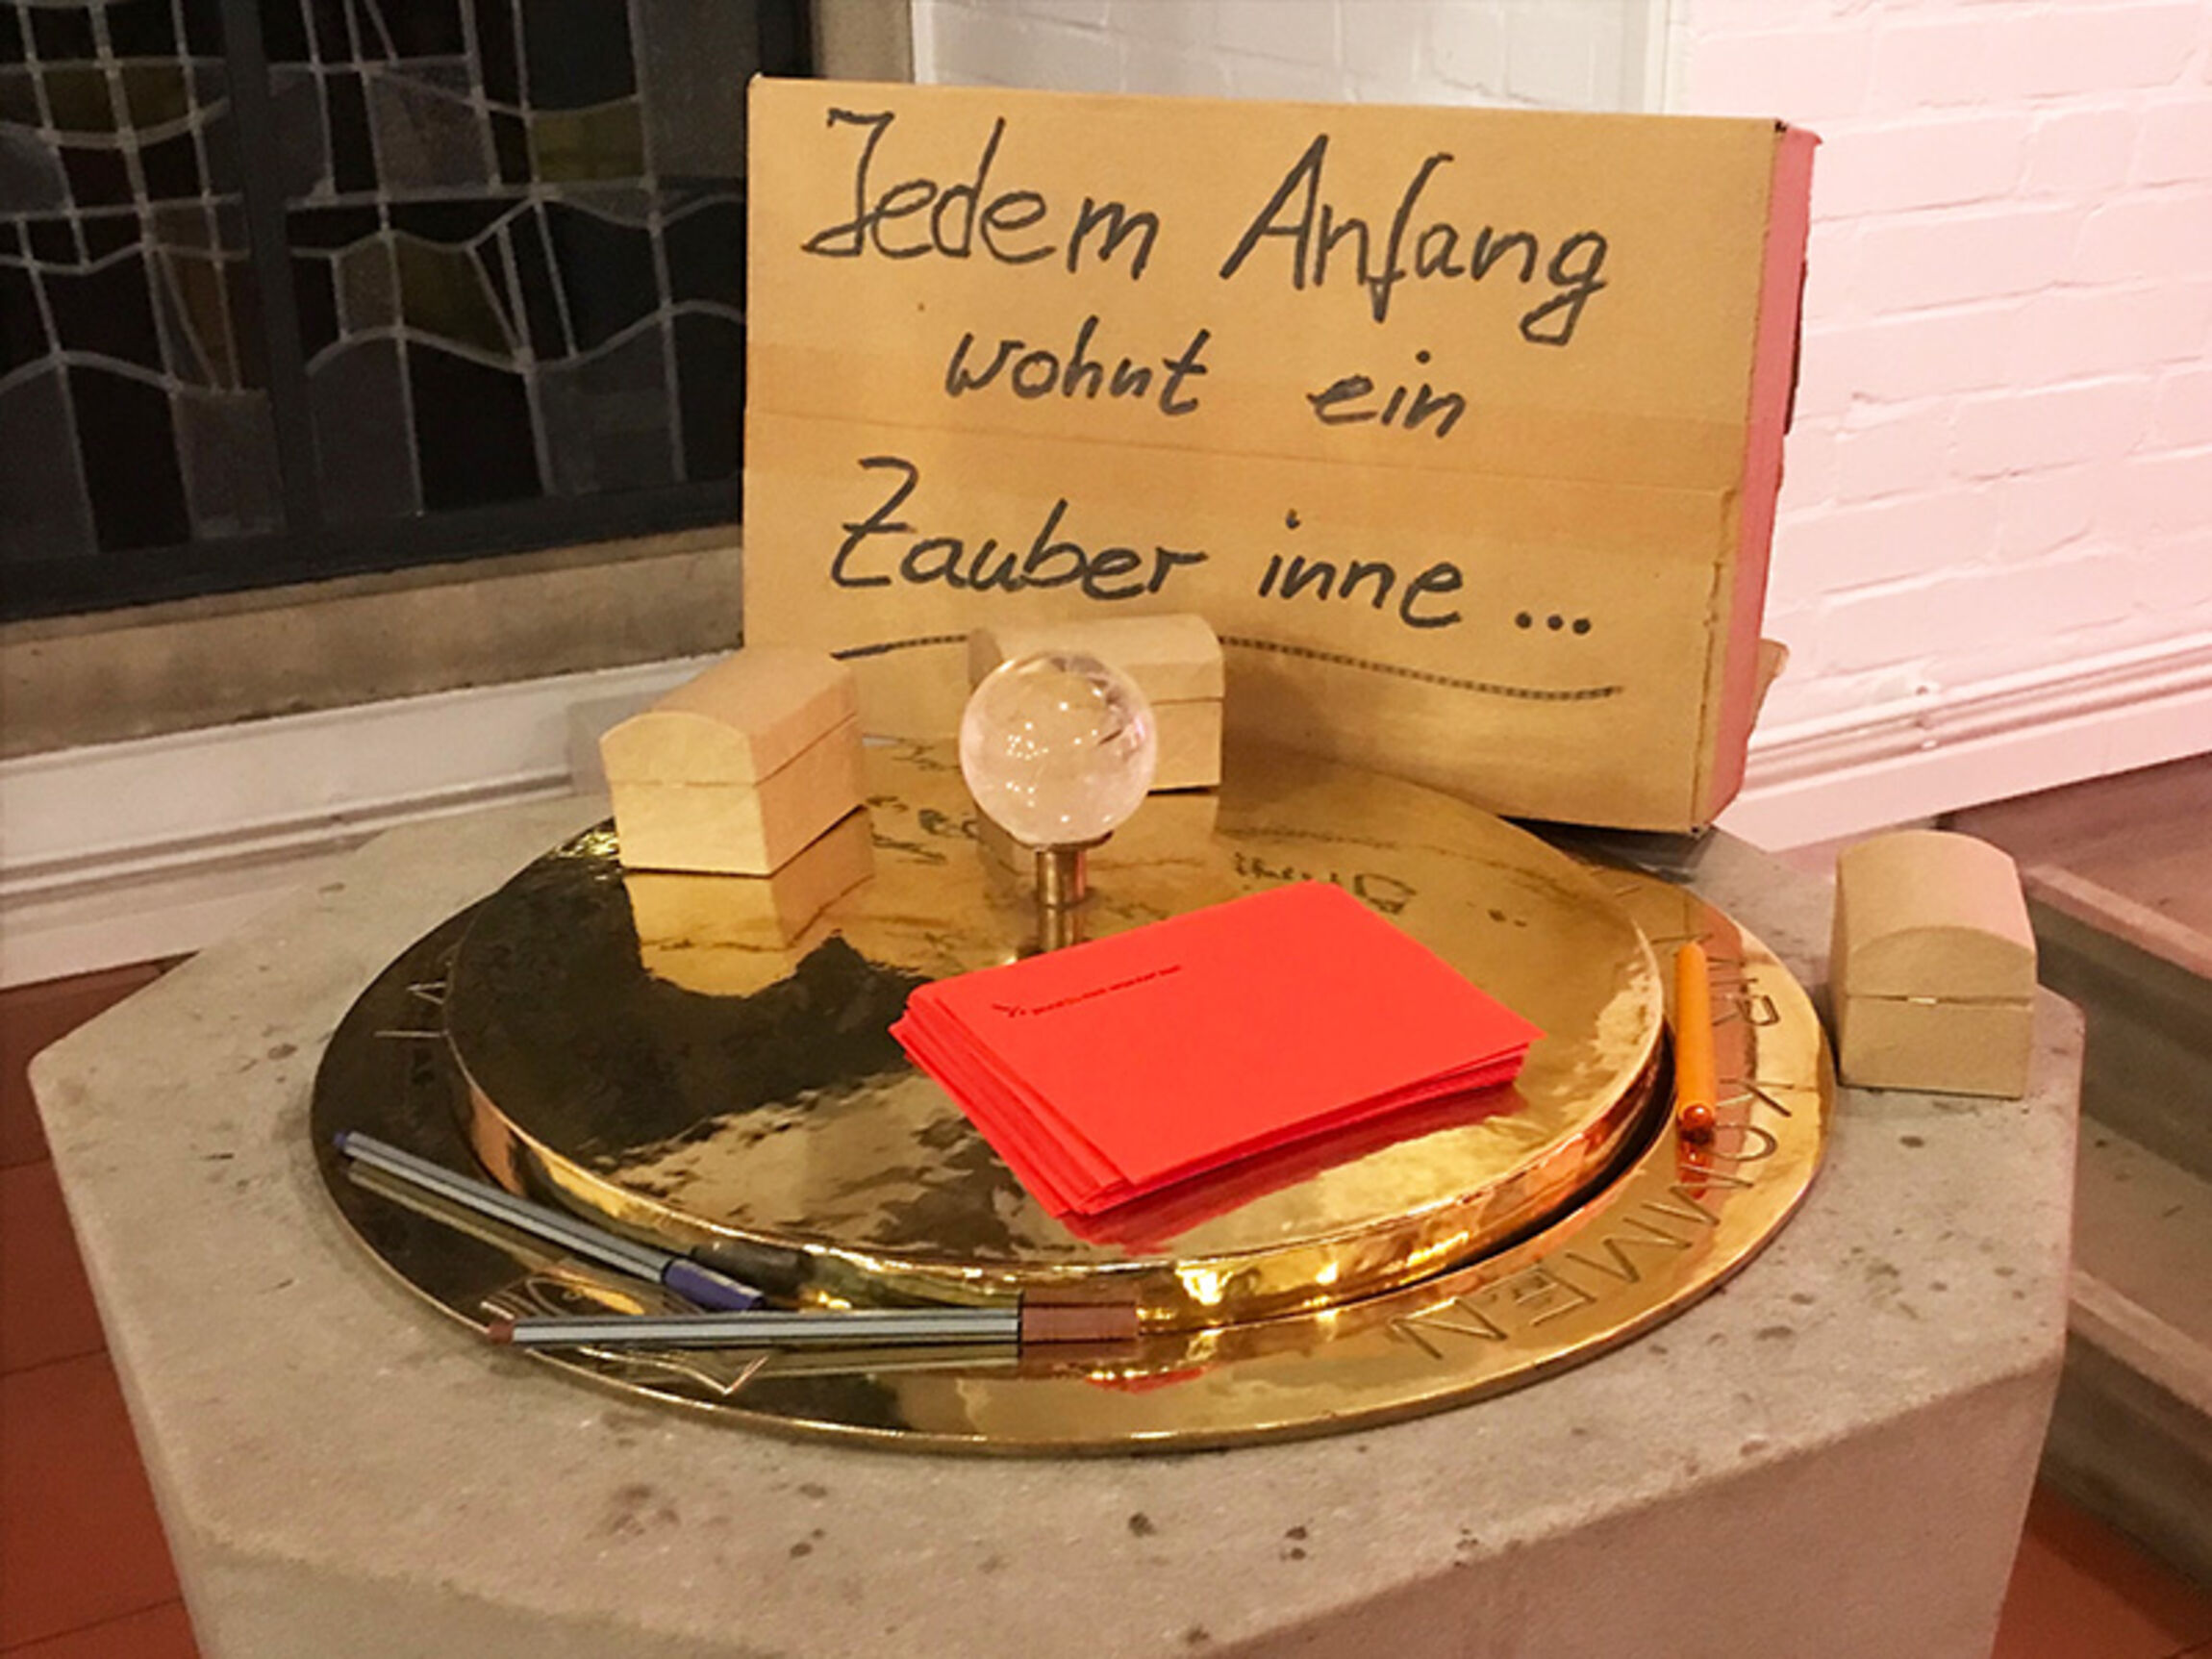 Jedem Anfang
wohnt ein
Zauber inne...
WIR KOMMEN